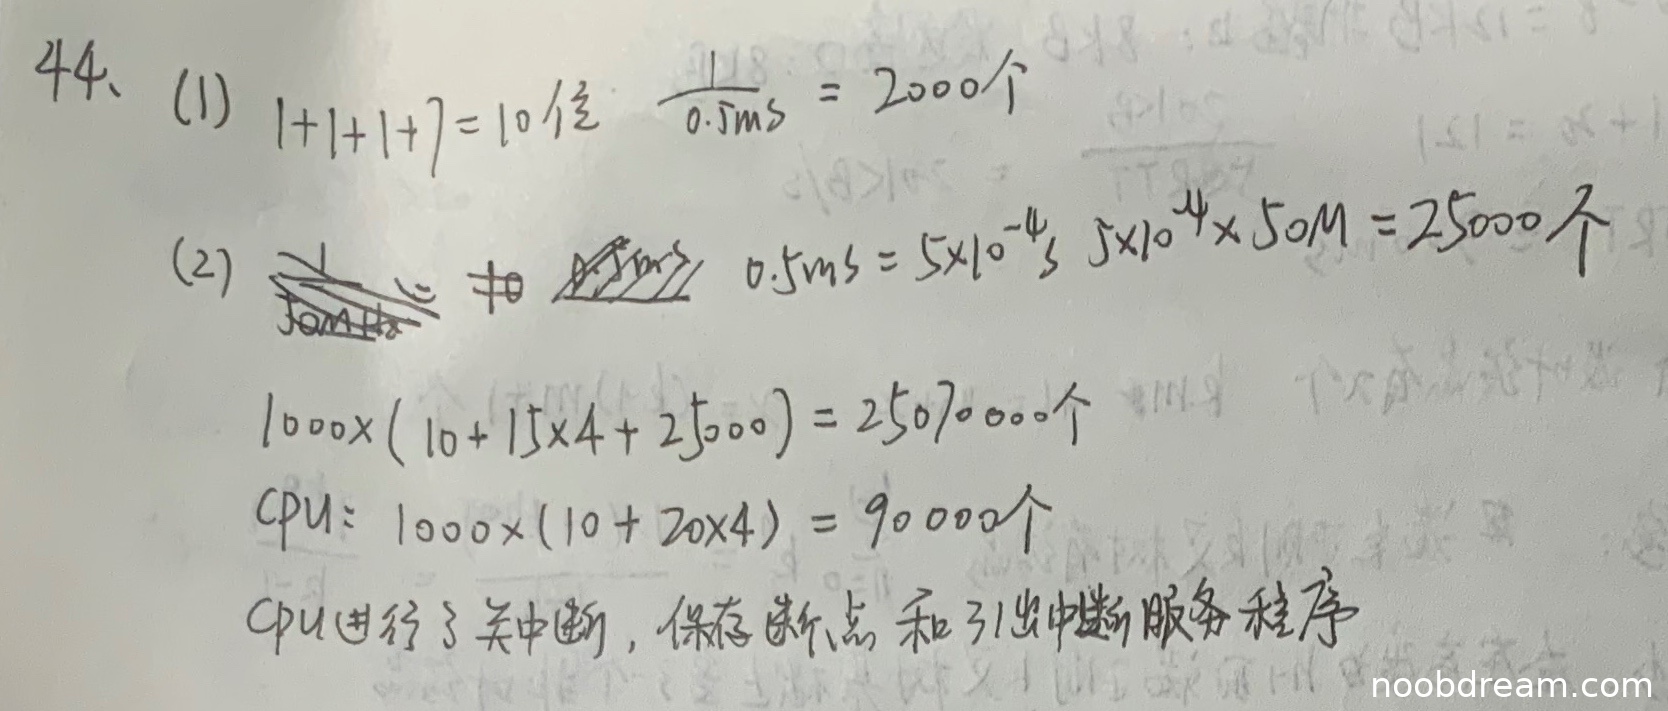 44、(1) 1+1+1+7=10位 1/0.5ms = 2000个
(2) 0.5ms = 5×10⁻⁴s 5×10⁻⁴×50M = 25000个
1000×(10+15×4+25000) = 25070000个
CPU: 1000×(10+20×4) = 90000个
CPU进行了关中断,保存断点和引出中断服务程序
noobdream.com